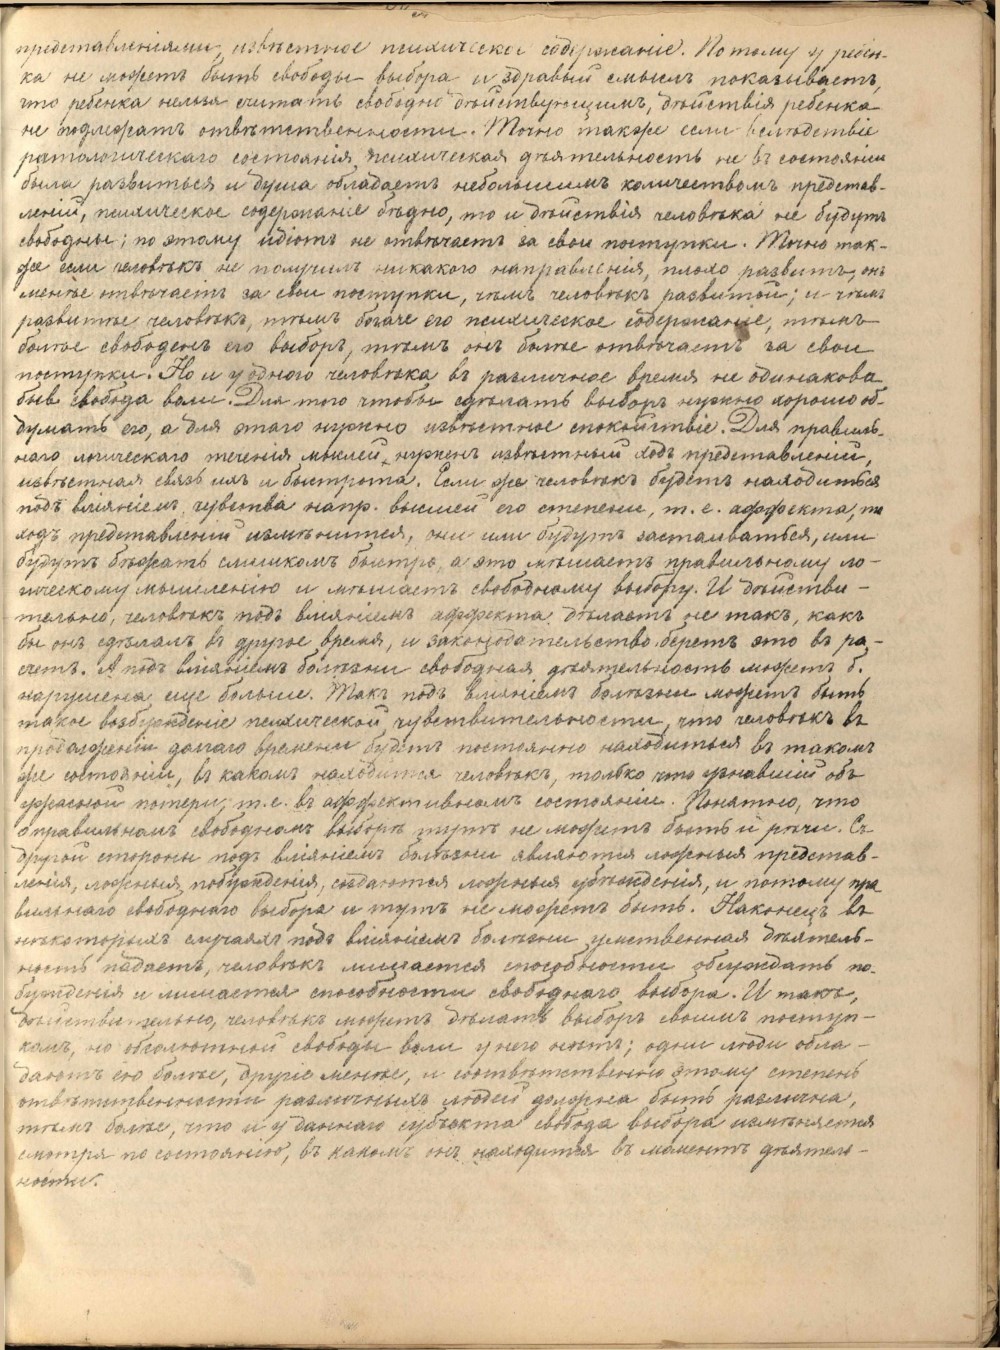 представленіями, извѣстное психическое содержаніе. Потому у ребен-
ка не можетъ быть свободы выбора и здравый смыслъ показываетъ,
что ребенка нельзя считать свободно дѣйствующимъ, дѣйствія ребенка
не подлежатъ отвѣтственности. Точно также если вслѣдствіе
патологическаго состоянія психическая дѣятельность не въ состояніи
была развиться и душа обладаетъ небольшимъ количествомъ представ-
леній, психическое содержаніе бѣдно, то и дѣйствія человѣка не будутъ
свободны; по этому идіотъ не отвѣчаетъ за свои поступки. Точно так-
же если человѣкъ не получилъ никакого направленія, плохо развитъ, онъ
менѣе отвѣчаетъ за свои поступки, чѣмъ человѣкъ развитой; и чѣмъ
развитѣе человѣкъ, тѣмъ богаче его психическое содержаніе, тѣмъ
болѣе свободенъ его выборъ, тѣмъ онъ болѣе отвѣчаетъ за свои
поступки. Но и у одного человѣка въ различное время не одинакова
быв. свобода воли. Для того чтобы сдѣлать выборъ нужно хорошо об-
думать его, а для этаго нужно извѣстное спокойствіе. Для правиль-
наго логическаго теченія мыслей, нуженъ извѣстный ходъ представленій,
извѣстная связь ихъ и быстрота. Если же человѣкъ будетъ находиться
подъ вліяніемъ чувства напр. высшей его степени, т. е. аффекта, то
ходъ представленій измѣнится, они или будутъ застаиваться, или
будутъ бѣжать слишкомъ быстро, а это мѣшаетъ правильному ло-
гическому мышленію и мѣшаетъ свободному выбору. И дѣйстви-
тельно, человѣкъ подъ вліяніемъ аффекта дѣлаетъ не такъ, какъ
бы онъ сдѣлалъ въ другое время, и законодательство беретъ это въ ра-
счетъ. А подъ вліяніемъ болѣзни свободная дѣятельность можетъ б.
нарушена еще больше. Такъ подъ вліяніемъ болѣзни можетъ быть
такое возбужденіе психической чувствительности, что человѣкъ въ
продолженіи долгаго времени будетъ постоянно находиться въ такомъ
же состояніи, въ какомъ находится человѣкъ, только что узнавшій объ
ужасной потери, т. е. въ аффективномъ состояніи. Понятно, что
о правильномъ свободномъ выборѣ тутъ не можетъ быть и рѣчи. Съ
другой стороны подъ вліяніемъ болѣзни являются ложныя представ-
ленія, ложныя побужденія, создаются ложныя убѣжденія, и потому пра
вильнаго свободнаго выбора и тутъ не можетъ быть. Наконецъ въ
нѣкоторыхъ случаяхъ подъ вліяніемъ болѣзни умственная дѣятель-
ность падаетъ, человѣкъ лишается способности обсуждать по-
бужденія и лишается способности свободнаго выбора. И такъ,
дѣйствительно, человѣкъ можетъ дѣлать выборъ своимъ поступ-
камъ, но абсолютной свободы воли у него нѣтъ; одни люди обла-
даютъ ею болѣе, другіе менѣе, и соотвѣтственно этому степень
отвѣтственности различныхъ людей должна быть различна,
тѣмъ болѣе, что и у даннаго субъекта свобода выбора измѣняется
смотря по состоянію, въ какомъ онъ находится въ моментъ дѣятель-
ности.